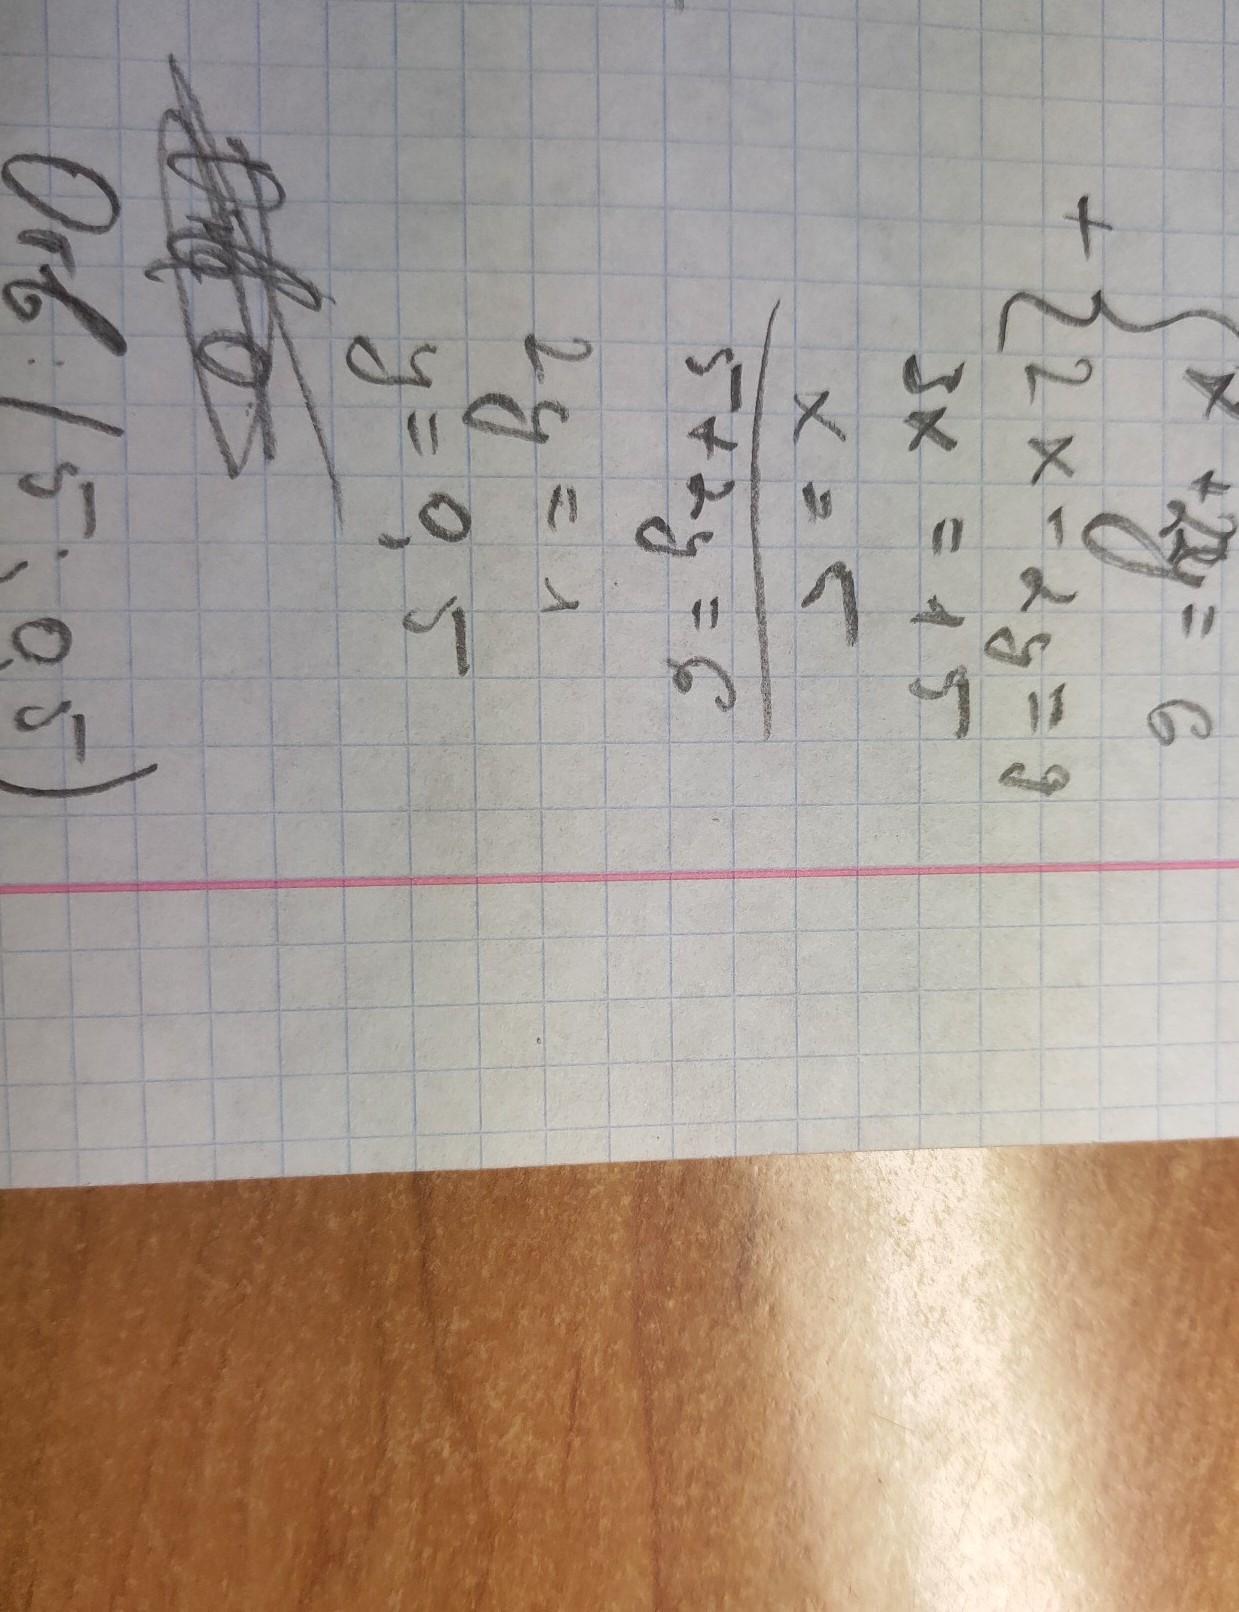 x + 2y = 6
+ { 2x - 2y = 9
3x = 15
x = 5
5 + 2y = 6
2y = 1
y = 0,5
Отв: (5; 0,5)